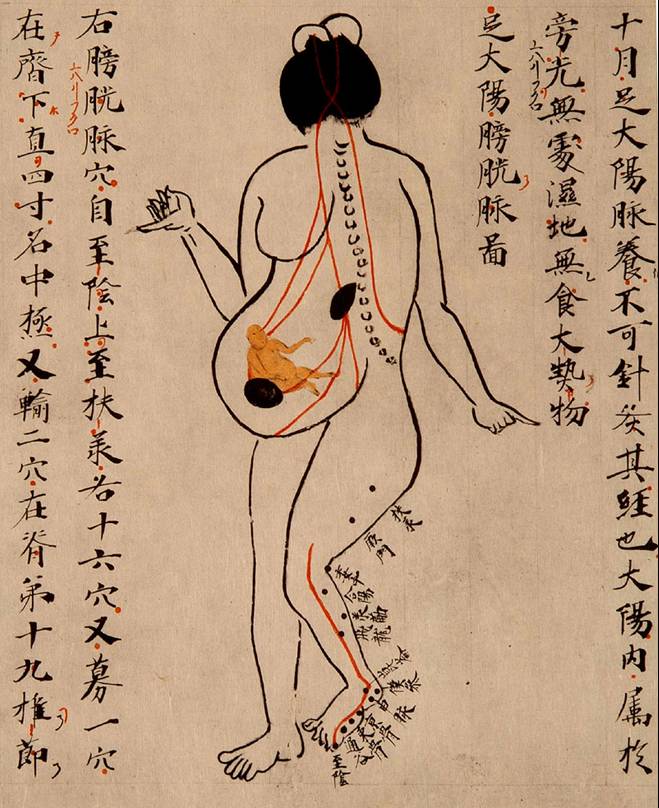 十月足大陽脉養不可針灸其經也大陽内属於
旁光無處濕地無食大熱物
足大陽膀胱脉啚
扶承
殷門
委中
合陽
僕参
申脉
京骨
束骨
通谷
至陰
右膀胱脉穴自至陰上至扶承各十六穴又募一穴
在齊下直四寸名中極又輸二穴在脊第十九椎節